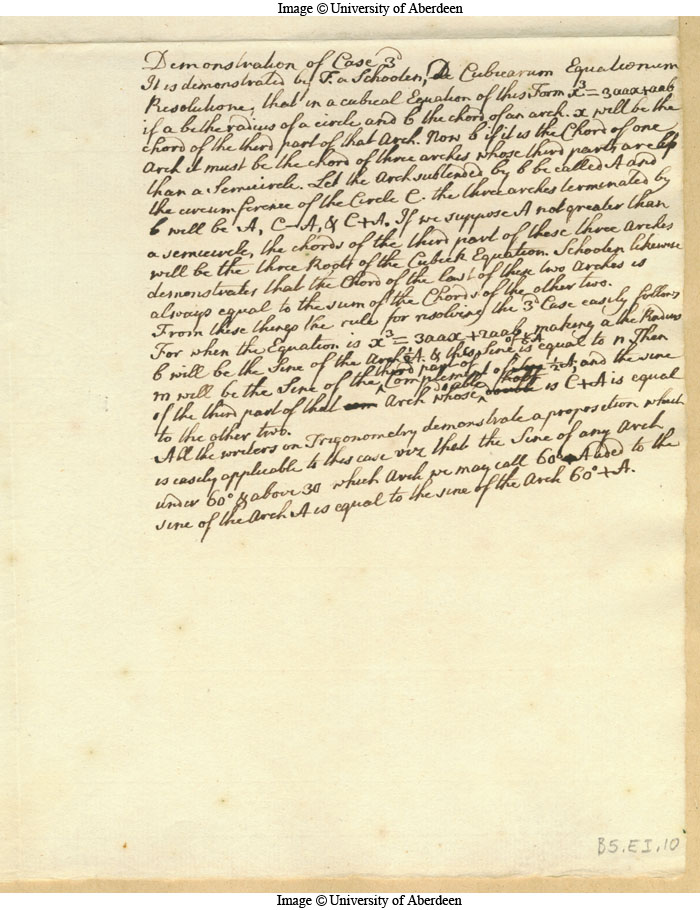 Image © University of Aberdeen
Demonstration of Case 3d
It is demonstrated by F. a Schooten, De Cubicarum Equationum
Resolutione, that in a cubical Equation of this Form x³=3aax+aab
if a be the radius of a circle and b the chord of an arch. x will be the
chord of the third part of that Arch. Now b if it is the Chord of one
Arch it must be the chord of three arches whose third parts are less
than a Semicircle. Let the Arch subtended by b be called A and
the circumference of the Circle C. the three arches terminated by
b will be A, C−A, & C+A. If we suppose A not greater than
a semicircle, the chords of the third part of these three Arches
will be the three Roots of the Cubick Equation. Schooten likewise
demonstrates that the Chord of the last of these two Arches is
always equal to the sum of the Chords of the other two.
From these things the rule for resolving the 3d Case easily follows
For when the Equation is x³=3aax+2aab, making a the Radius
b will be the Sine of the Arch ½A. & the Sine is equal to n. Then
m will be the Sine of the third part of Complement of ½A, and the sine
of the third part of that Arch whose is C+A is equal
to the other two.
All the writers on Trigonometry demonstrate a proposition which
is easily applicable to this case viz that the Sine of any Arch
under 60° & above 30 which Arch we may call 60°−A added to the
sine of the Arch A is equal to the sine of the Arch 60°+A.
B5.EI.10
Image © University of Aberdeen